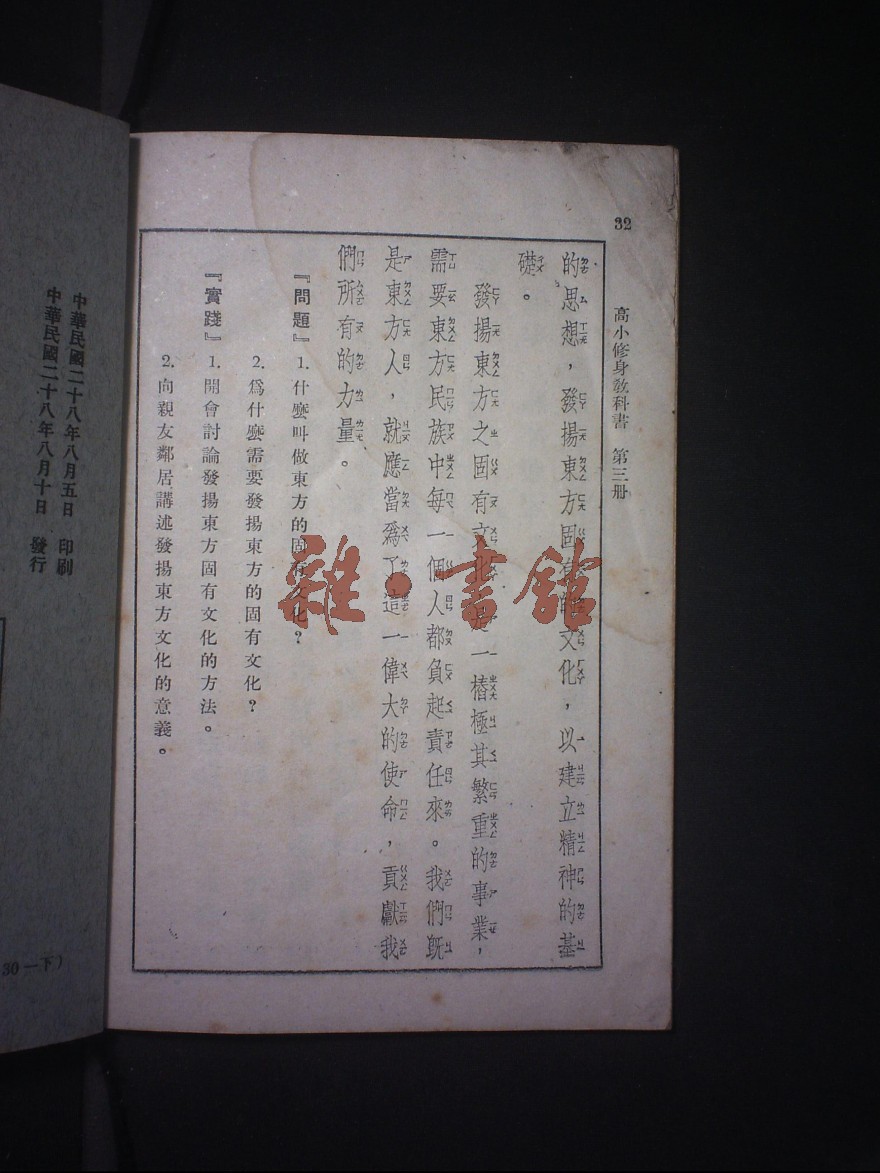 32
高小修身教科書　第三册
的思想，發揚東方固有的文化，以建立精神的基
礎。
發揚東方之固有文化是一樁極其繁重的事業，
需要東方民族中每一個人都負起責任來。我們既
是東方人，就應當爲了這一偉大的使命，貢獻我
們所有的力量。
『問題』1. 什麽叫做東方的固有文化？
2. 爲什麽需要發揚東方的固有文化？
『實踐』1. 開會討論發揚東方固有文化的方法。
2. 向親友鄰居講述發揚東方文化的意義。
中華民國二十八年八月五日　印刷
中華民國二十八年八月十日　發行
30一下）
雜·書館